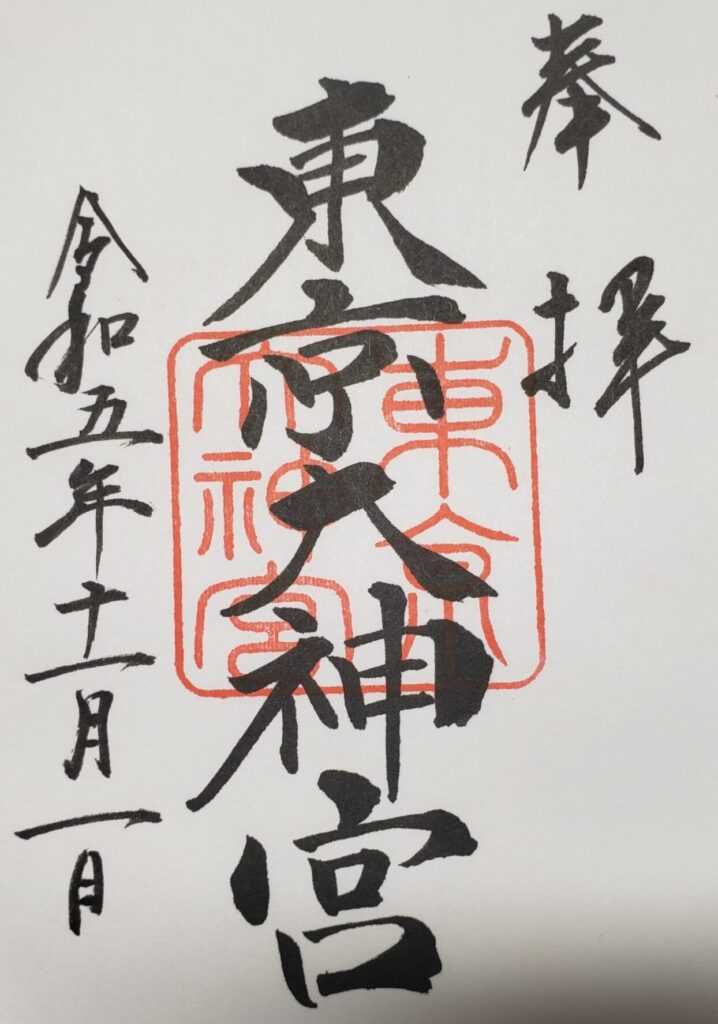 奉拝
東京大神宮
東京
大神宮
令和五年十一月一日